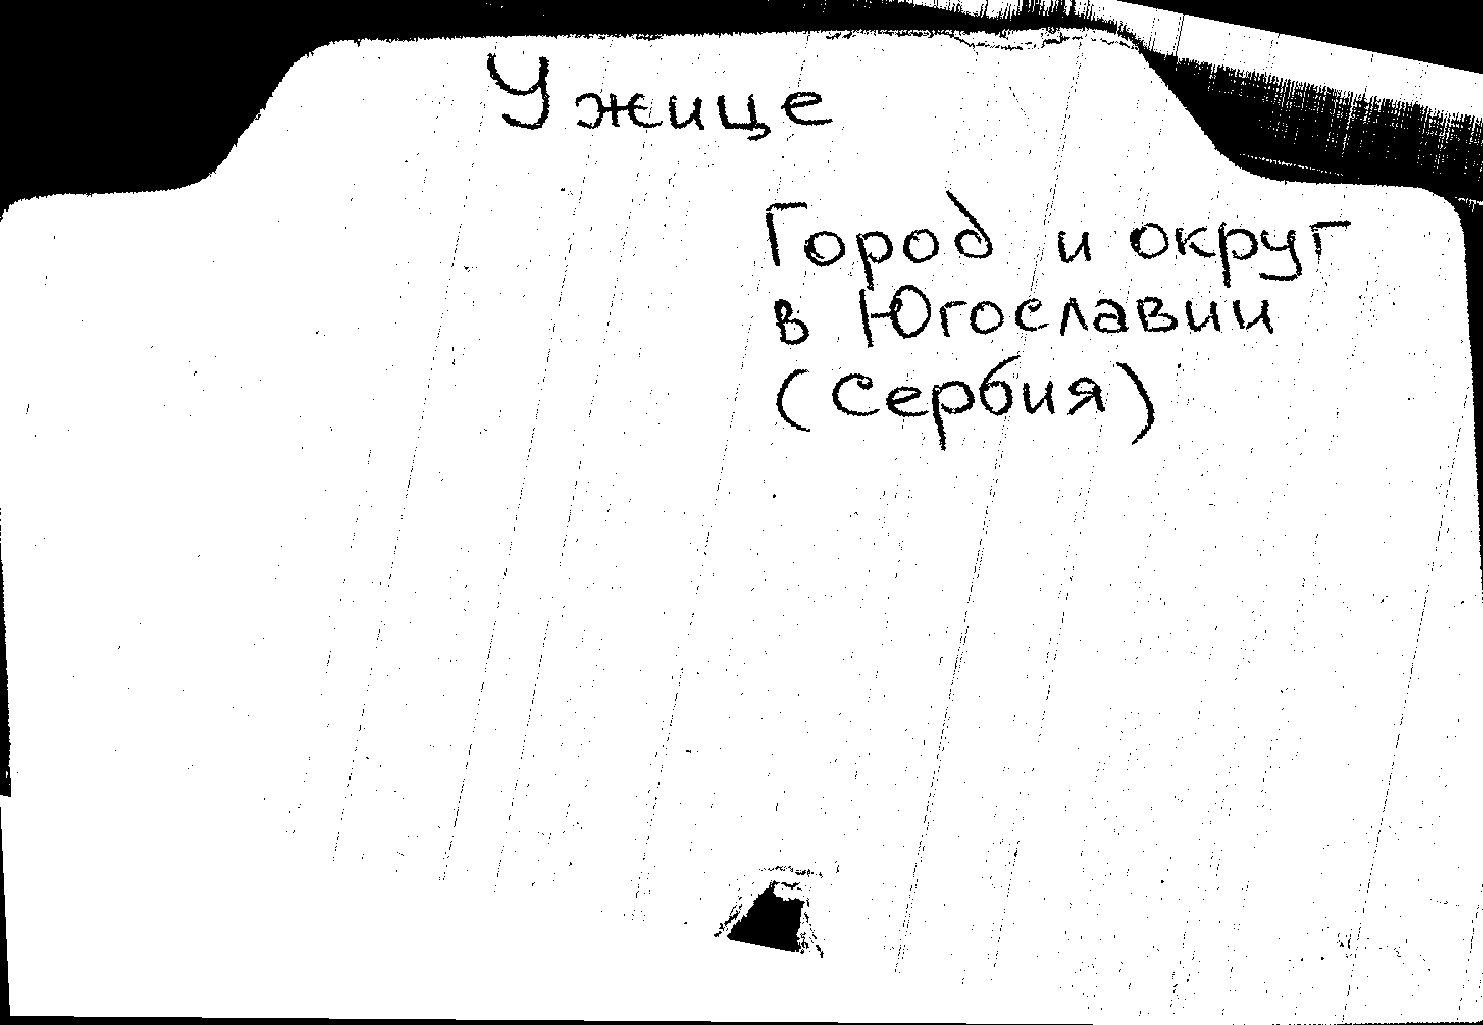 Ужице
Город и округ
в Югославии
(Сербия)